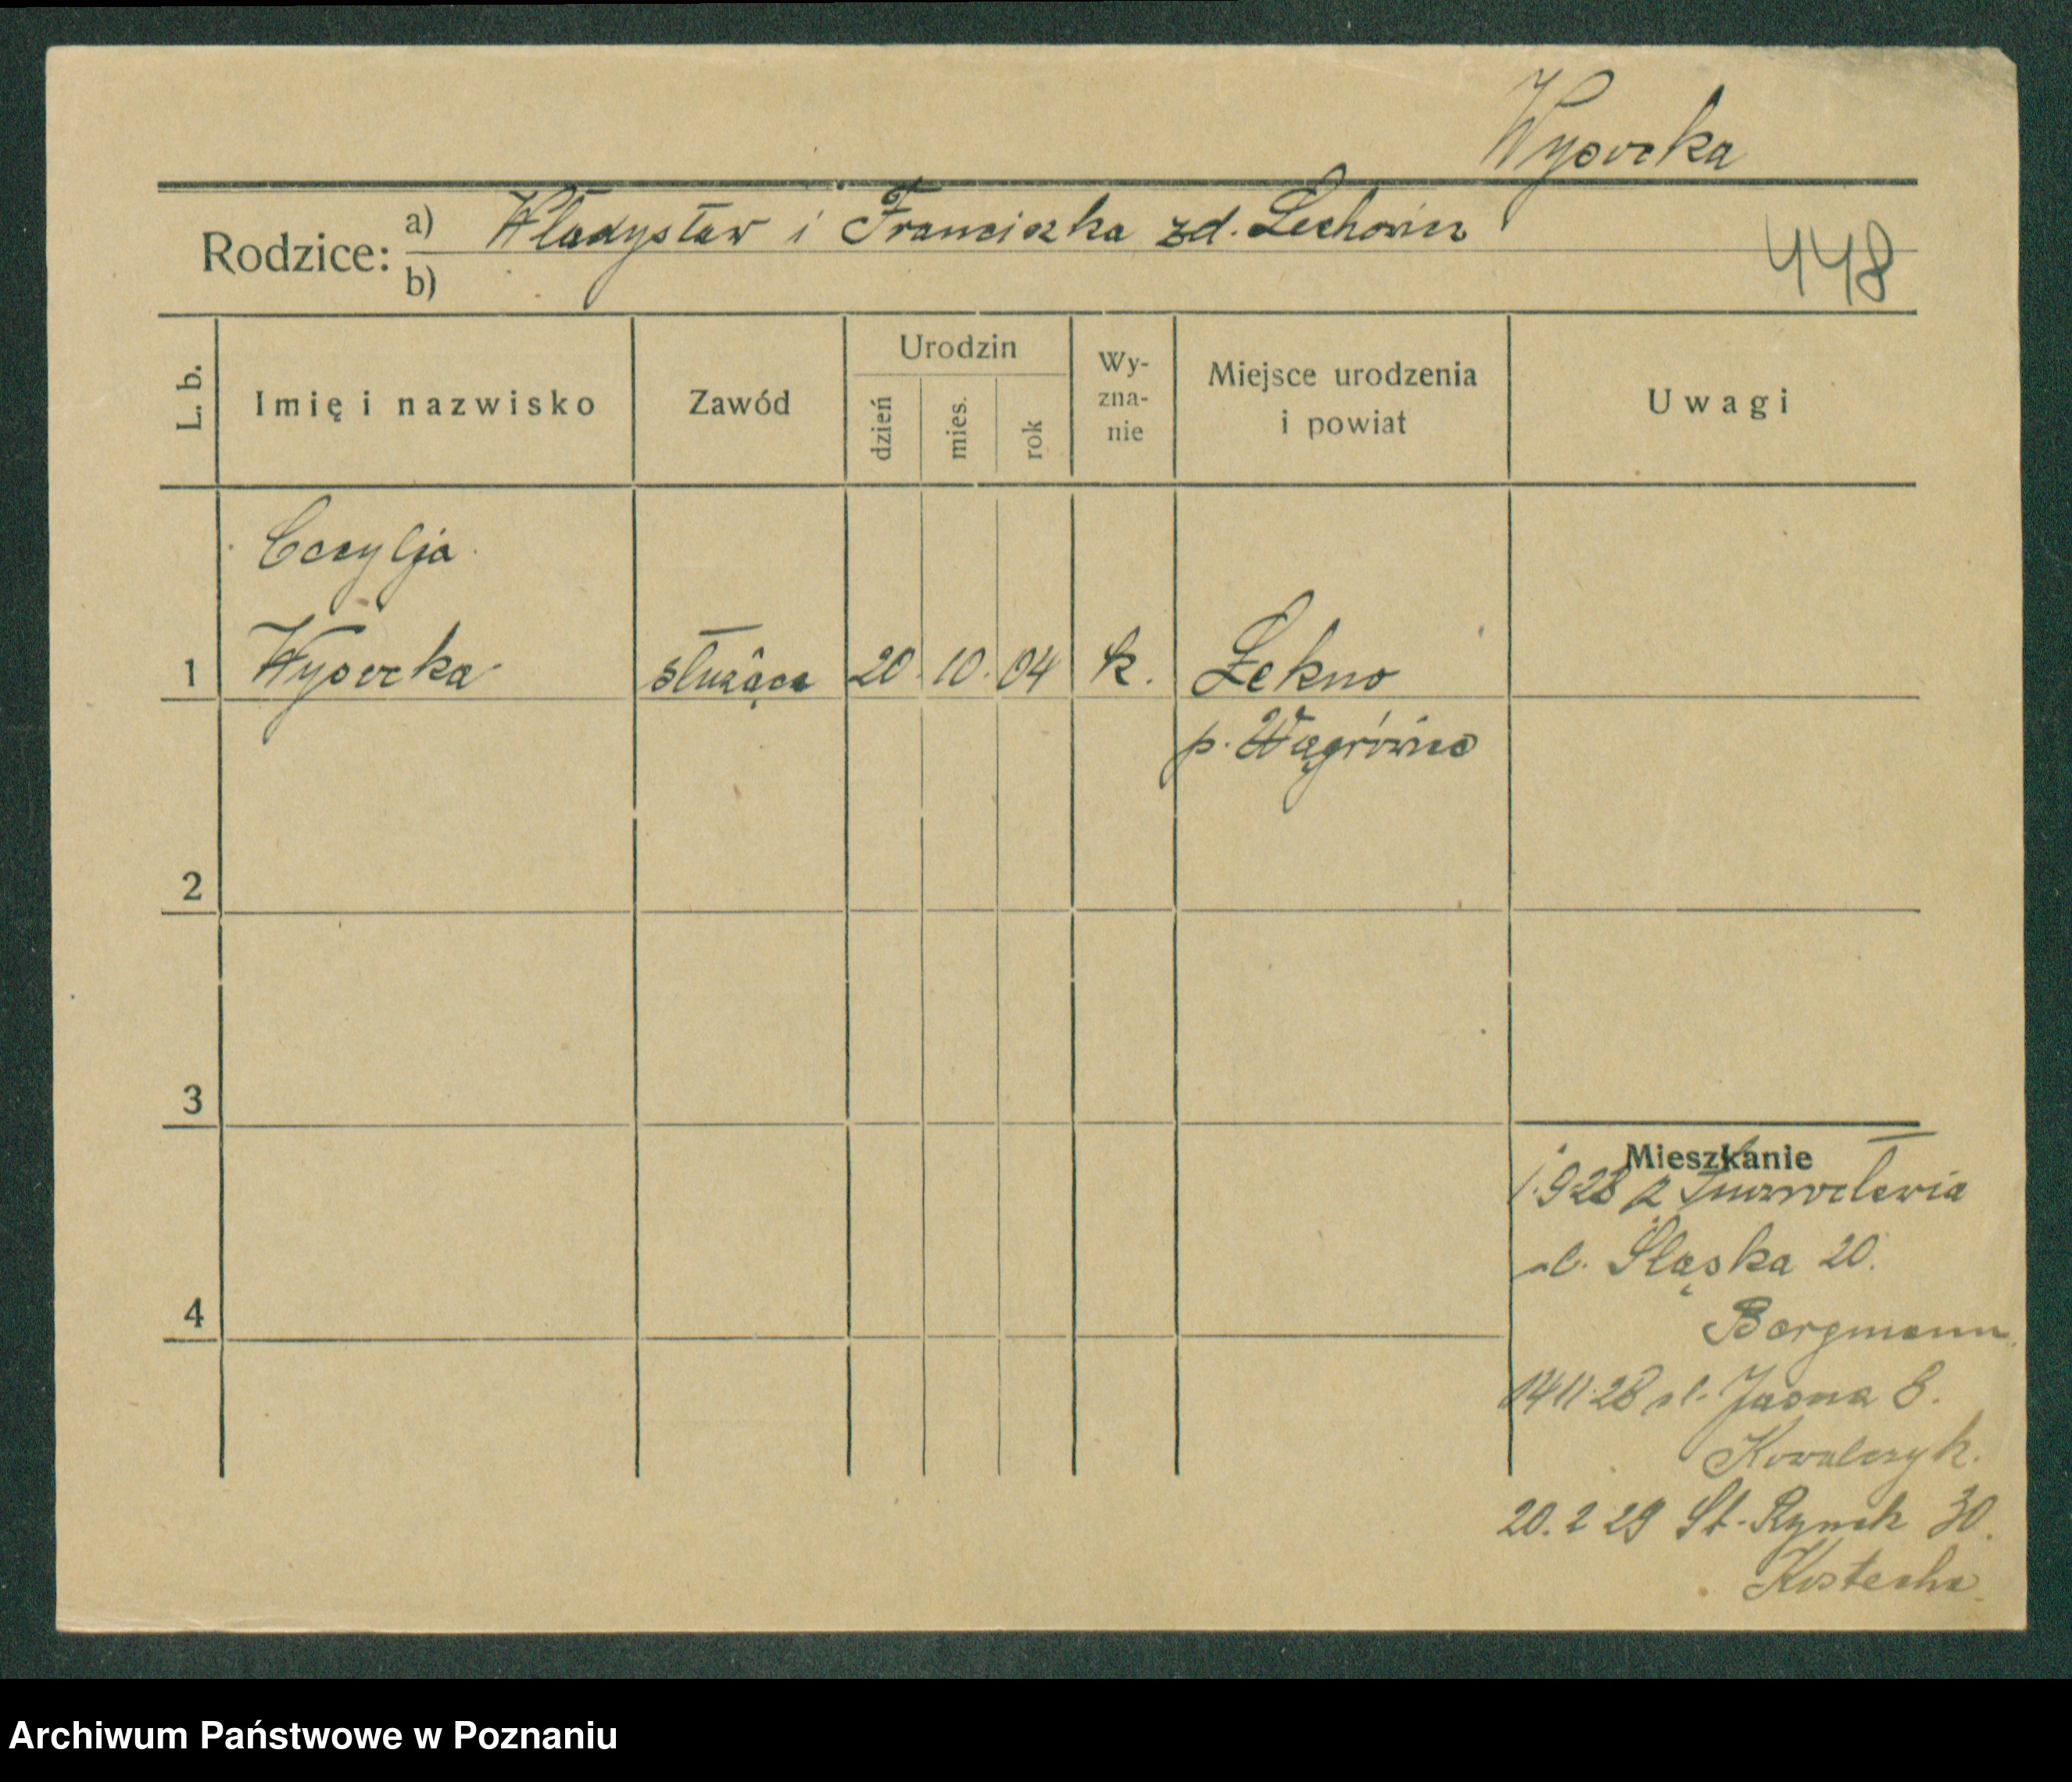 Wysocka
Rodzice: a) Władysław i Franciszka zd. Lechowicz
b)
448
L. b.
Imię i nazwisko
Zawód
Urodzin
dzień
mies.
rok
Wy-
zna-
nie
Miejsce urodzenia
i powiat
Uwagi
Cecylja
1 Wysocka służąca 20. 10. 04 k. Łekno
p. Wągrówiec
2
3
4
Mieszkanie
1.9 28 z Inowrocławia
ul. Śląska 20.
Bergmann.
14 11 28 ul. Jasna 8.
Kowalczyk.
20. 2 29 St. Rynek 30.
Archiwum Państwowe w Poznaniu